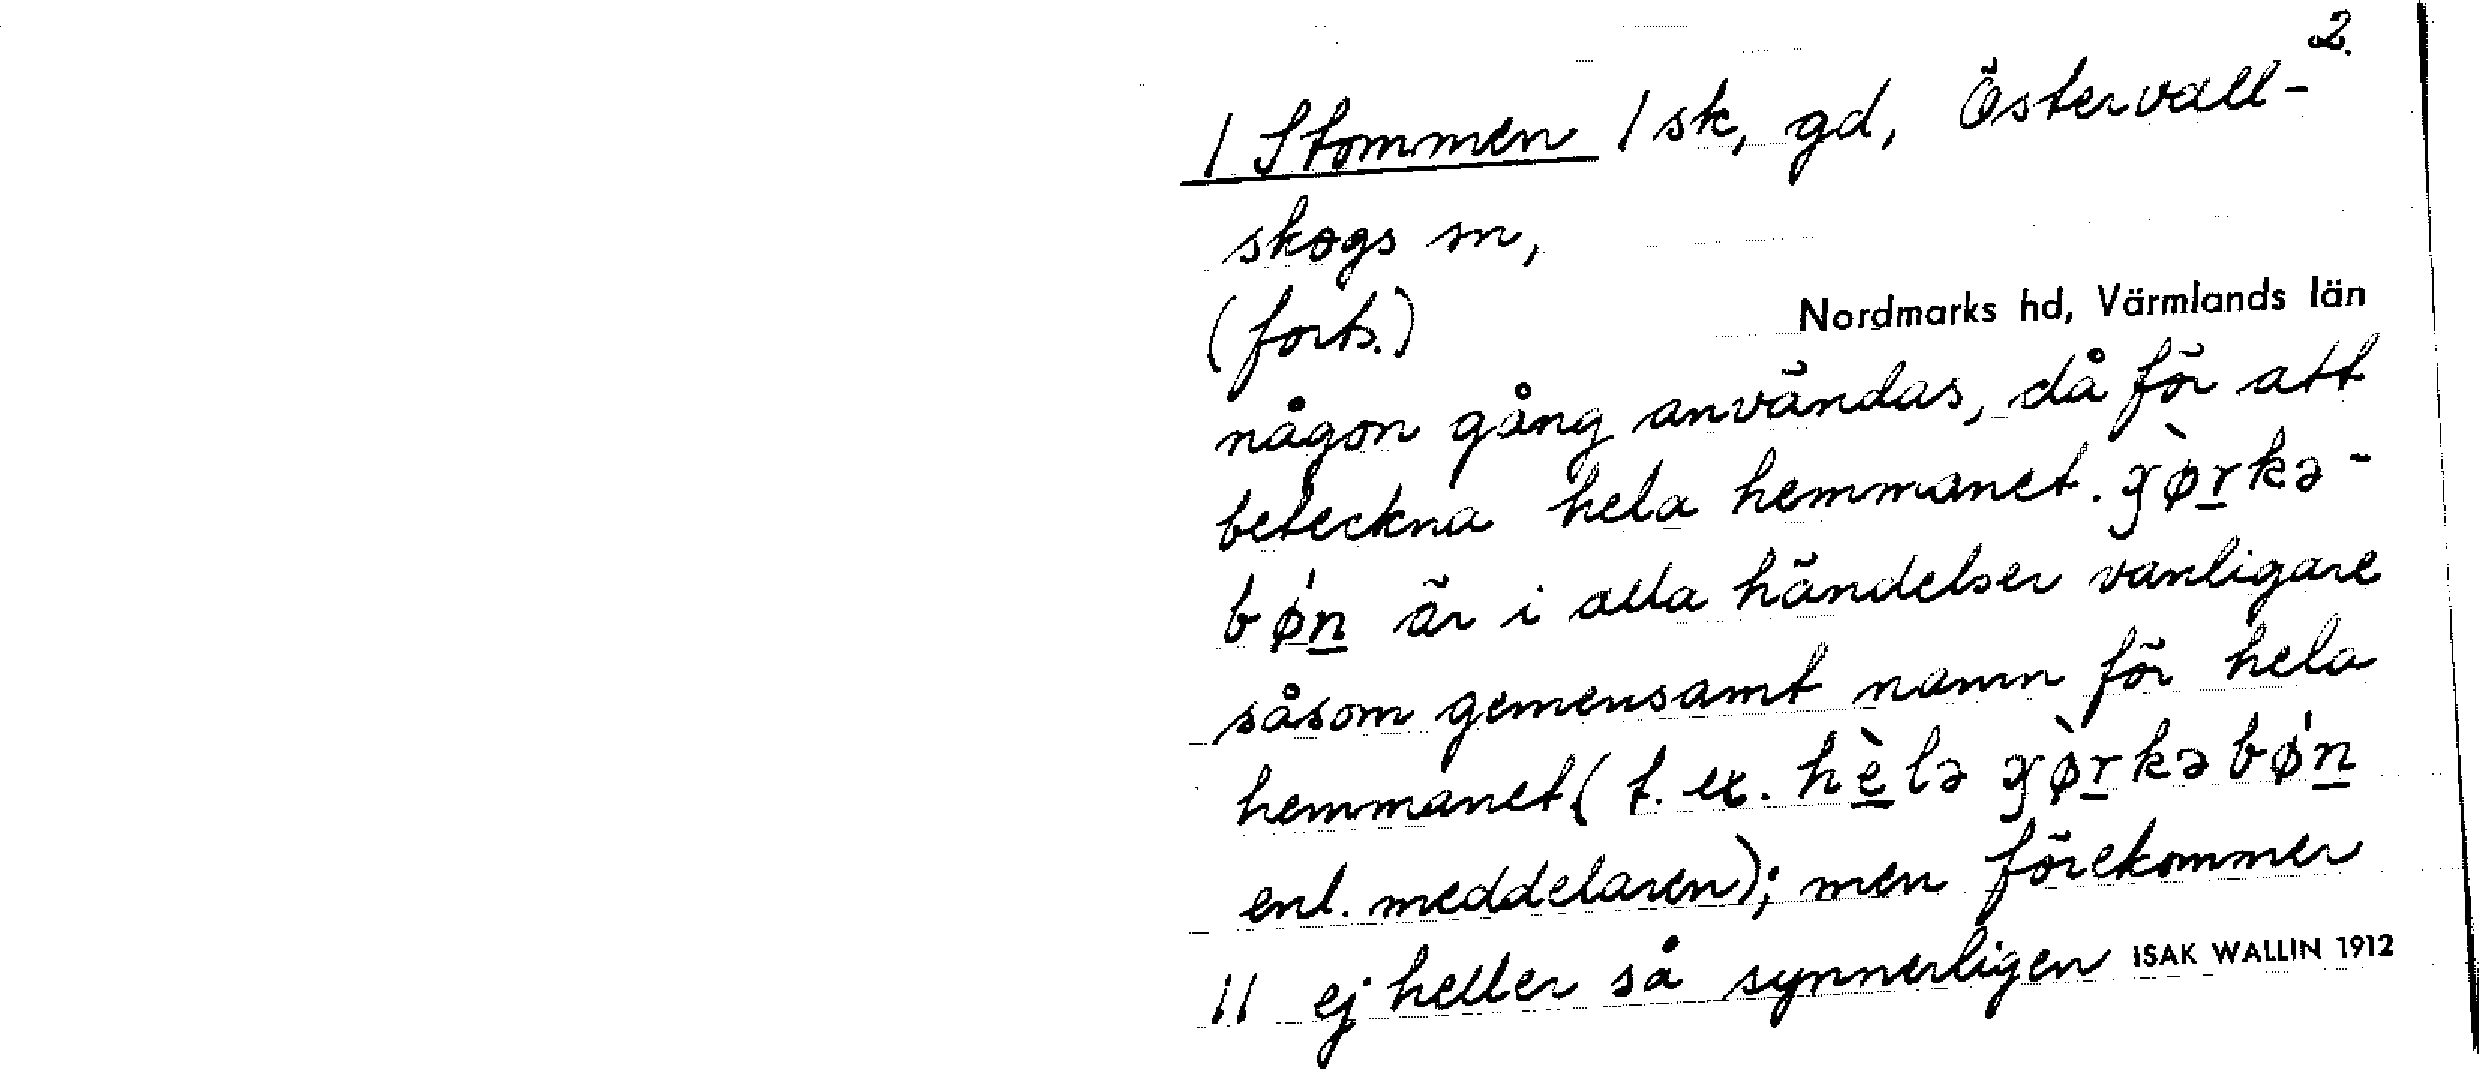 2.
/ Stommen / sk, gd, Östervall-
skogs sn,
(forts.)
Nordmarks hd, Värmlands län
någon gång användas, då för att
beteckna hela hemmanet. ꭓø̀rkə-
bǿn är i alla händelser vanligare
såsom gemensamt namn för hela
hemmanet (t. ex. hèlə ꭓø̀rkəbǿn
enl. meddelaren); men förekommer
// ej heller så synnerligen ISAK WALLIN 1912